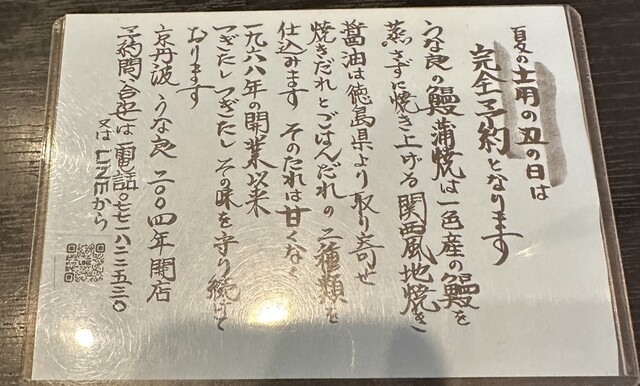 夏の土用の丑の日は
完全予約となります
うな良の鰻蒲焼は一色産の鰻を
蒸さずに焼き上げる関西風地焼き
醤油は徳島県より取り寄せ
焼きだれとごはんだれの二種類を
仕込みます そのたれは甘くなく
一九六八年の開業以来
つぎたしつぎたし その味を守り続けて
おります
京丹波・うな良 二〇〇四年開店
予約問い合せは電話〇七七一八二二五三〇
又はLINEから
LINE